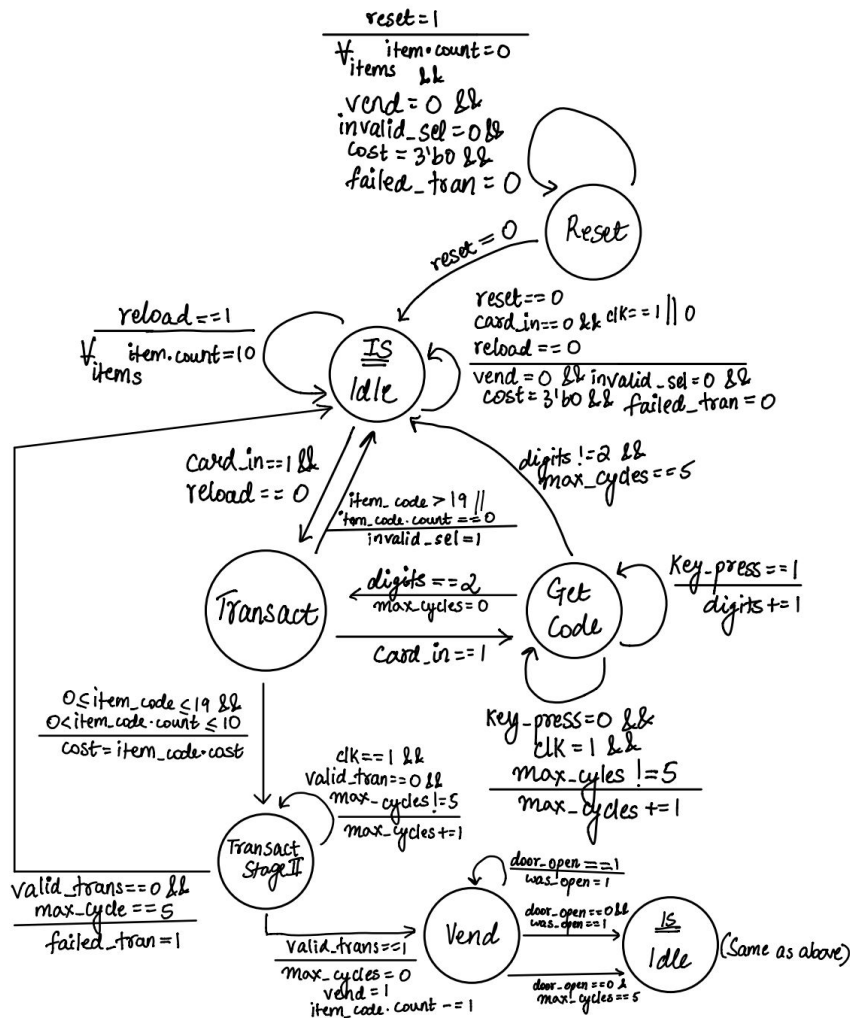 reset=1
∀items item.count=0
&&
vend=0 &&
invalid_sel=0&&
cost=3'b0 &&
failed_tran=0
Reset
reset=0
reload==1
∀items item.count=10
IS
Idle
reset==0
card_in==0 && clk==1||0
reload==0
vend=0 && invalid_sel=0 &&
cost=3'b0 && failed_tran=0
card_in==1 &&
reload==0
item_code>19 ||
item_code.count==0
invalid_sel=1
digits!=2 &&
max_cycles==5
Transact
digits==2
max_cycles=0
Card_in==1
Get
Code
Key_press==1
digits+=1
0≤item_code≤19 &&
0<item_code.count≤10
cost=item_code.cost
key_press=0 &&
clk=1 &&
max_cyles!=5
max_cycles+=1
clk==1 &&
valid_tran==0 &&
max_cycles!=5
max_cycles+=1
Transact
Stage II
valid_trans==0 &&
max_cycle==5
failed_tran=1
valid_trans==1
max_cycles=0
vend=1
item_code.count-=1
door_open==1
was_open=1
Vend
door_open==0&&
was_open==1
door_open==0 &
max_cycles==5
IS
Idle
(Same as above)